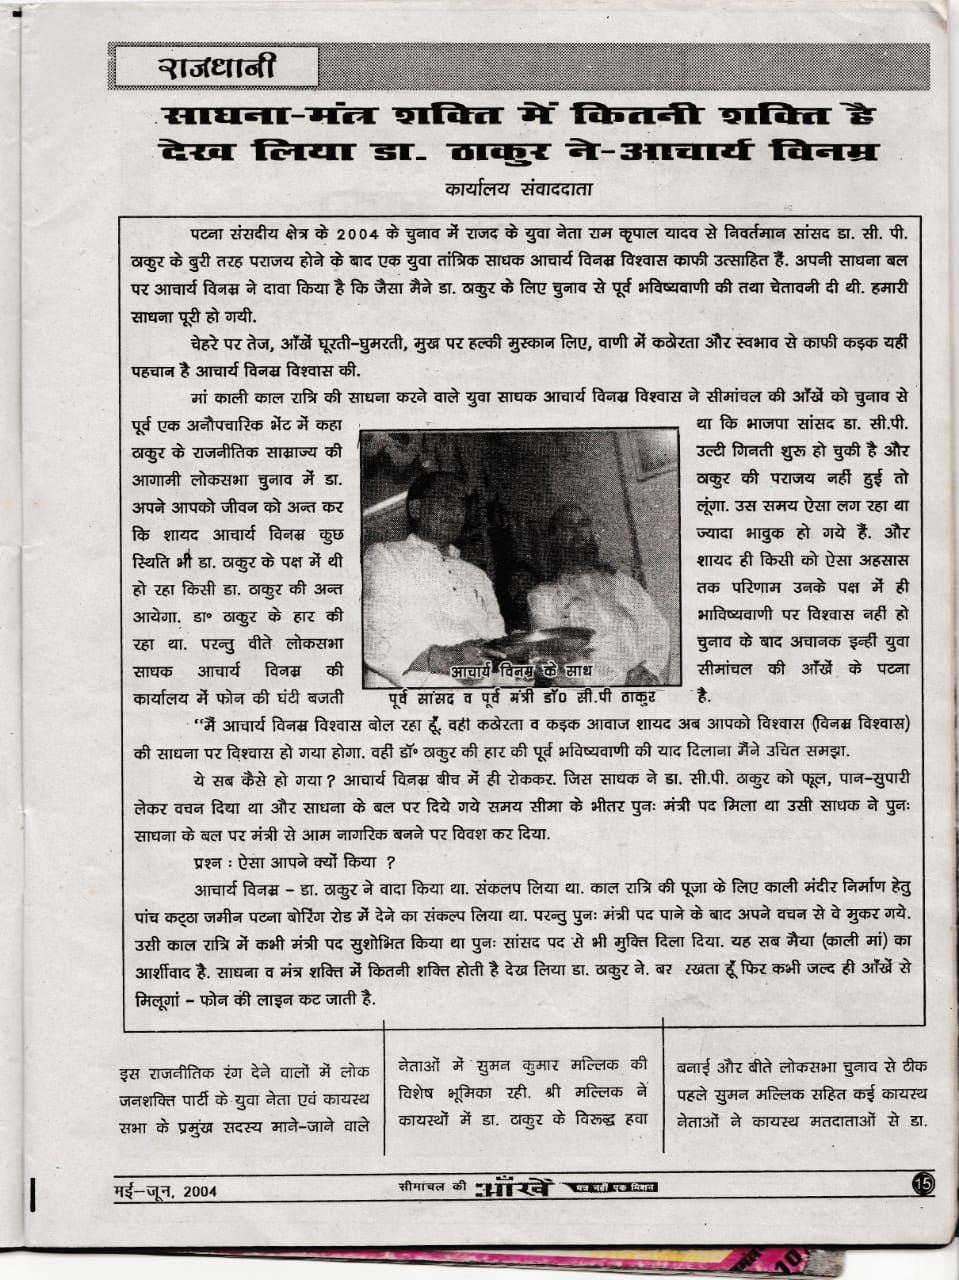 राजधानी
साधना-मंत्र शक्ति में कितनी शक्ति है
देख लिया डा. ठाकुर ने-आचार्य विनम्र
कार्यालय संवाददाता
पटना संसदीय क्षेत्र के 2004 के चुनाव में राजद के युवा नेता राम कृपाल यादव से निवर्तमान सांसद डा. सी. पी.
ठाकुर के बुरी तरह पराजय होने के बाद एक युवा तांत्रिक साधक आचार्य विनम्र विश्वास काफी उत्साहित हैं. अपनी साधना बल
पर आचार्य विनम्र ने दावा किया है कि जैसा मैने डा. ठाकुर के लिए चुनाव से पूर्व भविष्यवाणी की तथा चेतावनी दी थी. हमारी
साधना पूरी हो गयी.
चेहरे पर तेज, आँखें घूरती-घुमरती, मुख पर हल्की मुस्कान लिए, वाणी में कठोरता और स्वभाव से काफी कड़क यहीं
पहचान है आचार्य विनम्र विश्वास की.
मां काली काल रात्रि की साधना करने वाले युवा साधक आचार्य विनम्र विश्वास ने सीमांचल की आँखें को चुनाव से
पूर्व एक अनौपचारिक भेंट में कहा था कि भाजपा सांसद डा. सी.पी.
ठाकुर के राजनीतिक साम्राज्य की उल्टी गिनती शुरू हो चुकी है और
आगामी लोकसभा चुनाव में डा. ठाकुर की पराजय नहीं हुई तो
अपने आपको जीवन को अन्त कर लूंगा. उस समय ऐसा लग रहा था
कि शायद आचार्य विनम्र कुछ ज्यादा भावुक हो गये हैं. और
स्थिति भी डा. ठाकुर के पक्ष में थी शायद ही किसी को ऐसा अहसास
हो रहा किसी डा. ठाकुर की अन्त तक परिणाम उनके पक्ष में ही
आयेगा. डा॰ ठाकुर के हार की भाविष्यवाणी पर विश्वास नहीं हो
रहा था. परन्तु वीते लोकसभा चुनाव के बाद अचानक इन्हीं युवा
साधक आचार्य विनम्र की सीमांचल की आँखें के पटना
कार्यालय में फोन की घंटी बजती है.
आचार्य विनम्र के साथ
पूर्व सांसद व पूर्व मंत्री डॉ0 सी.पी ठाकुर
“मैं आचार्य विनम्र विश्वास बोल रहा हूँ, वही कठोरता व कड़क आवाज शायद अब आपको विश्वास (विनम्र विश्वास)
की साधना पर विश्वास हो गया होगा. वहीं डॉ॰ ठाकुर की हार की पूर्व भविष्यवाणी की याद दिलाना मैंने उचित समझा.
ये सब कैसे हो गया? आचार्य विनम्र बीच में ही रोककर. जिस साधक ने डा. सी.पी. ठाकुर को फूल, पान-सुपारी
लेकर वचन दिया था और साधना के बल पर दिये गये समय सीमा के भीतर पुनः मंत्री पद मिला था उसी साधक ने पुनः
साधना के बल पर मंत्री से आम नागरिक बनने पर विवश कर दिया.
प्रश्न : ऐसा आपने क्यों किया ?
आचार्य विनम्र - डा. ठाकुर ने वादा किया था. संकलप लिया था. काल रात्रि की पूजा के लिए काली मंदीर निर्माण हेतु
पांच कट्ठा जमीन पटना बोरिंग रोड में देने का संकल्प लिया था. परन्तु पुनः मंत्री पद पाने के बाद अपने वचन से वे मुकर गये.
उसी काल रात्रि में कभी मंत्री पद सुशोभित किया था पुनः सांसद पद से भी मुक्ति दिला दिया. यह सब मैया (काली मां) का
आर्शीवाद है. साधना व मंत्र शक्ति में कितनी शक्ति होती है देख लिया डा. ठाकुर ने. बर रखता हूँ फिर कभी जल्द ही आँखें से
मिलूगां - फोन की लाइन कट जाती है.
इस राजनीतिक रंग देने वालों में लोक
जनशक्ति पार्टी के युवा नेता एवं कायस्थ
सभा के प्रमुंख सदस्य माने-जाने वाले
नेताओं में सुमन कुमार मल्लिक की
विशेष भूमिका रही. श्री मल्लिक ने
कायस्थों में डा. ठाकुर के विरूद्ध हवा
बनाई और बीते लोकसभा चुनाव से टीक
पहले सुमन मल्लिक सहित कई कायस्थ
नेताओं ने कायस्थ मतदाताओं से डा.
मई-जून, 2004
सीमांचल की आँखें पत्र नहीं एक मिशन
15
10